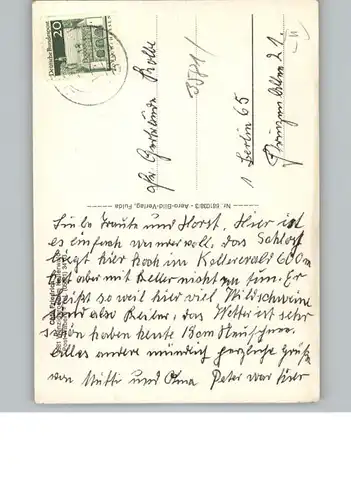 Deutsche Bundespost
20
Gertrude Kolbe
1 Berlin 65
Nr. 681038/3 - Aero-Bild-Verlag, Fulda
Liebe Traute und Horst, Hier ist
es einfach wundervoll, das Schloß
liegt hier hoch im Kellerwald 600m
hat aber mit Keller nicht zu tun. Er
heißt so weil hier viel Wildschweine
sind also Keiler, das Wetter ist sehr
schön haben heute 18cm Neuschnee.
Alles andere mündlich herzliche Grüße
von Mutti und Oma Peter war hier